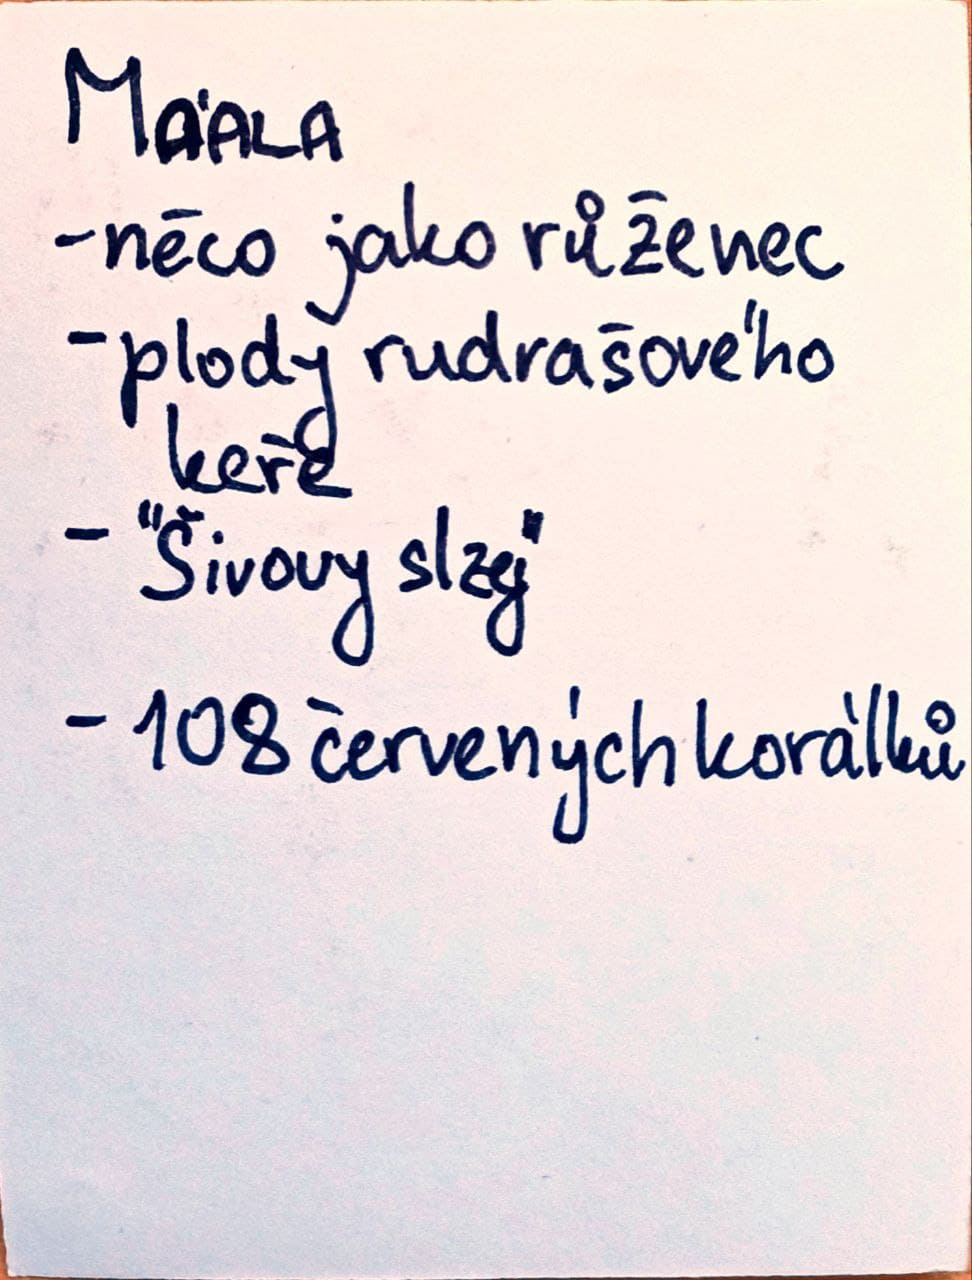 MáALA
- něco jako růženec
- plody rudrašového
keře
- "Šivovy slzy"
- 108 červených korálků